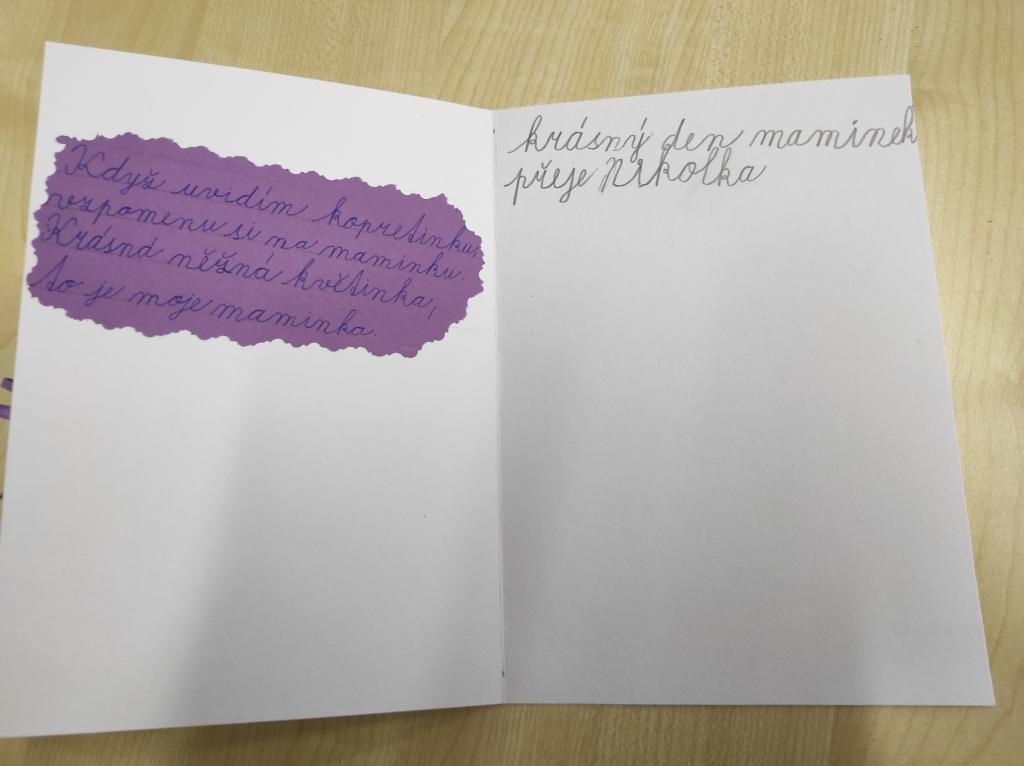 Když uvidím kopretinku,
vzpomenu si na maminku.
Krásná něžná květinka,
to je moje maminka.
krásný den maminek
přeje Nikolka